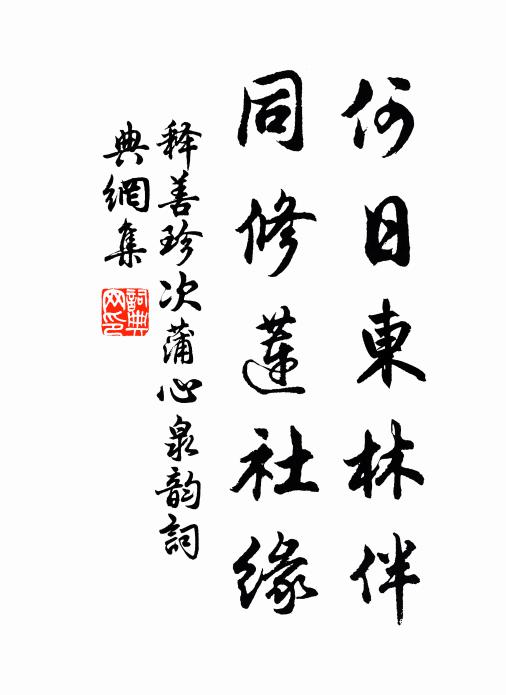 何日東林伴
同修蓮社緣
释善珍次蒲心泉韵詞
典網集
詞典
网印